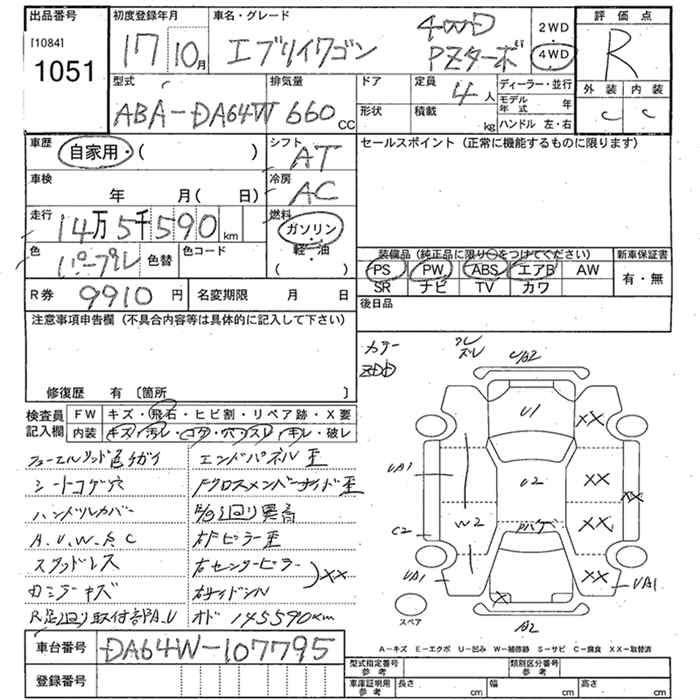 出品番号 初度登録年月 車名・グレード 評価点
[1084]
1051
17 10月 エブリイワゴン 4WD PZターボ
2WD
4WD
R
型式 排気量 ドア 定員 ディーラー・並行 外装 内装
ABA-DA64W 660 cc 4人 モデル年式 年 C C
形状 積載 kg ハンドル 左・右
車歴 自家用・( ) シフト AT セールスポイント(正常に機能するものに限ります)
車検 年 月(日) 冷房 AC
走行 14万5千590 km 燃料 ガソリン
軽・油
( )
色 パープル 色替 色コード
装備品(純正品に限り○をつけてください) 新車保証書
PS PW ABS エアB AW 有・無
SR ナビ TV カワ
R券 9910円 名変期限 月 日 後日品
注意事項申告欄(不具合内容等は具体的に記入して下さい)
修復歴 有〔箇所 〕
検査員記入欄 FW キズ・飛石・ヒビ割・リペア跡・X要
内装 キズ・汚レ・コゲ・穴・スレ・キレ・破レ
フューエルリッド色チガイ エンドパネル歪
シートコゲ穴 Fクロスメンバーサイド歪
ハンドルカバー
A.U.W.&C 右Fピラー歪
スタッドレス 右センターピラー
右サイドシル XX
R足廻り取付部A.U オド 145590km
U A2
U1
XX
UA1
U2
XX
XX
C2
W2
ハゲ
XX
UA1
XX
UA1
X
スペア
A2
A-キズ E-エクボ U-凹み W-補修跡 S-サビ C-腐食 XX-取替済
車台番号 DA64W-107795
登録番号
型式指定番号 参考 類別区分番号 参考
車庫証明用 参考 長さ cm 幅 cm 高さ cm